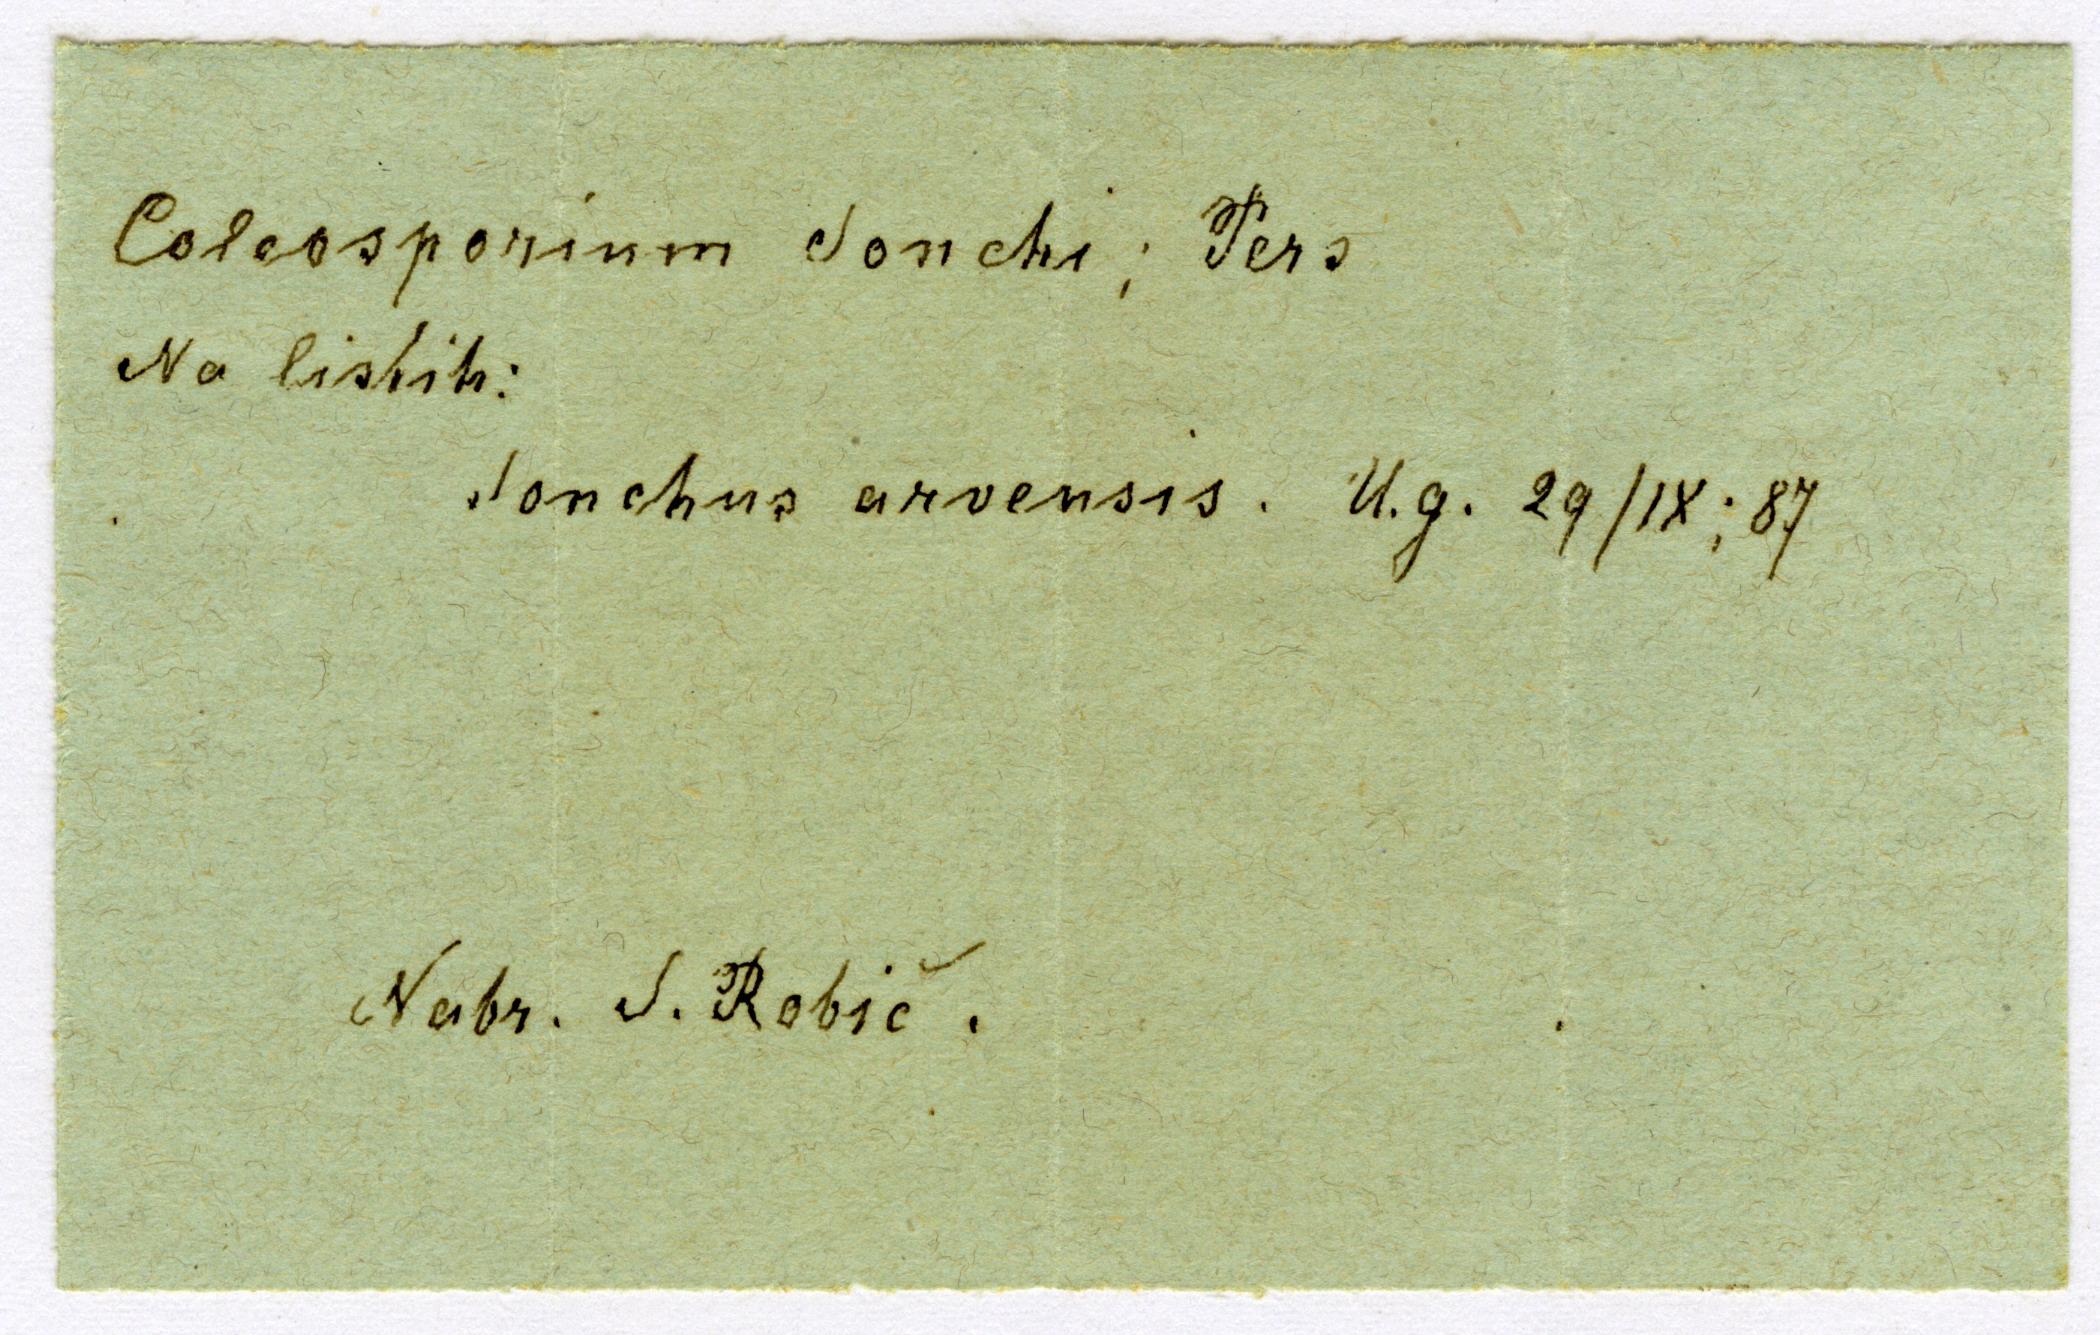 Coleosporium Sonchi; Pers
Na listih:
Sonchus arvensis. U.g. 29/IX; 87
Nabr. S. Robič.